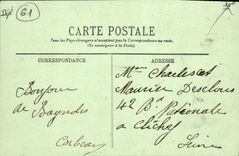 Dépt 61
CARTE POSTALE
Tous les Pays étrangers n'acceptent pas la Correspondance au recto.
(Se renseigner à la Poste)
CORRESPONDANCE
ADRESSE
Bonjour
de Bagnoles
Corbeau
Mr Charles et
Maurice Desclous
42 Bd Nationale
a Clichy
Seine